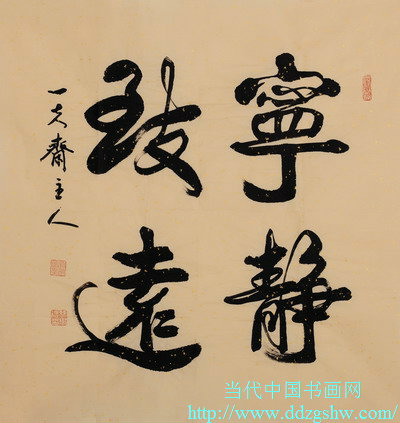 寧靜
致遠
一夫齋主人
当代中国书画网
http://www.ddzgshw.com/